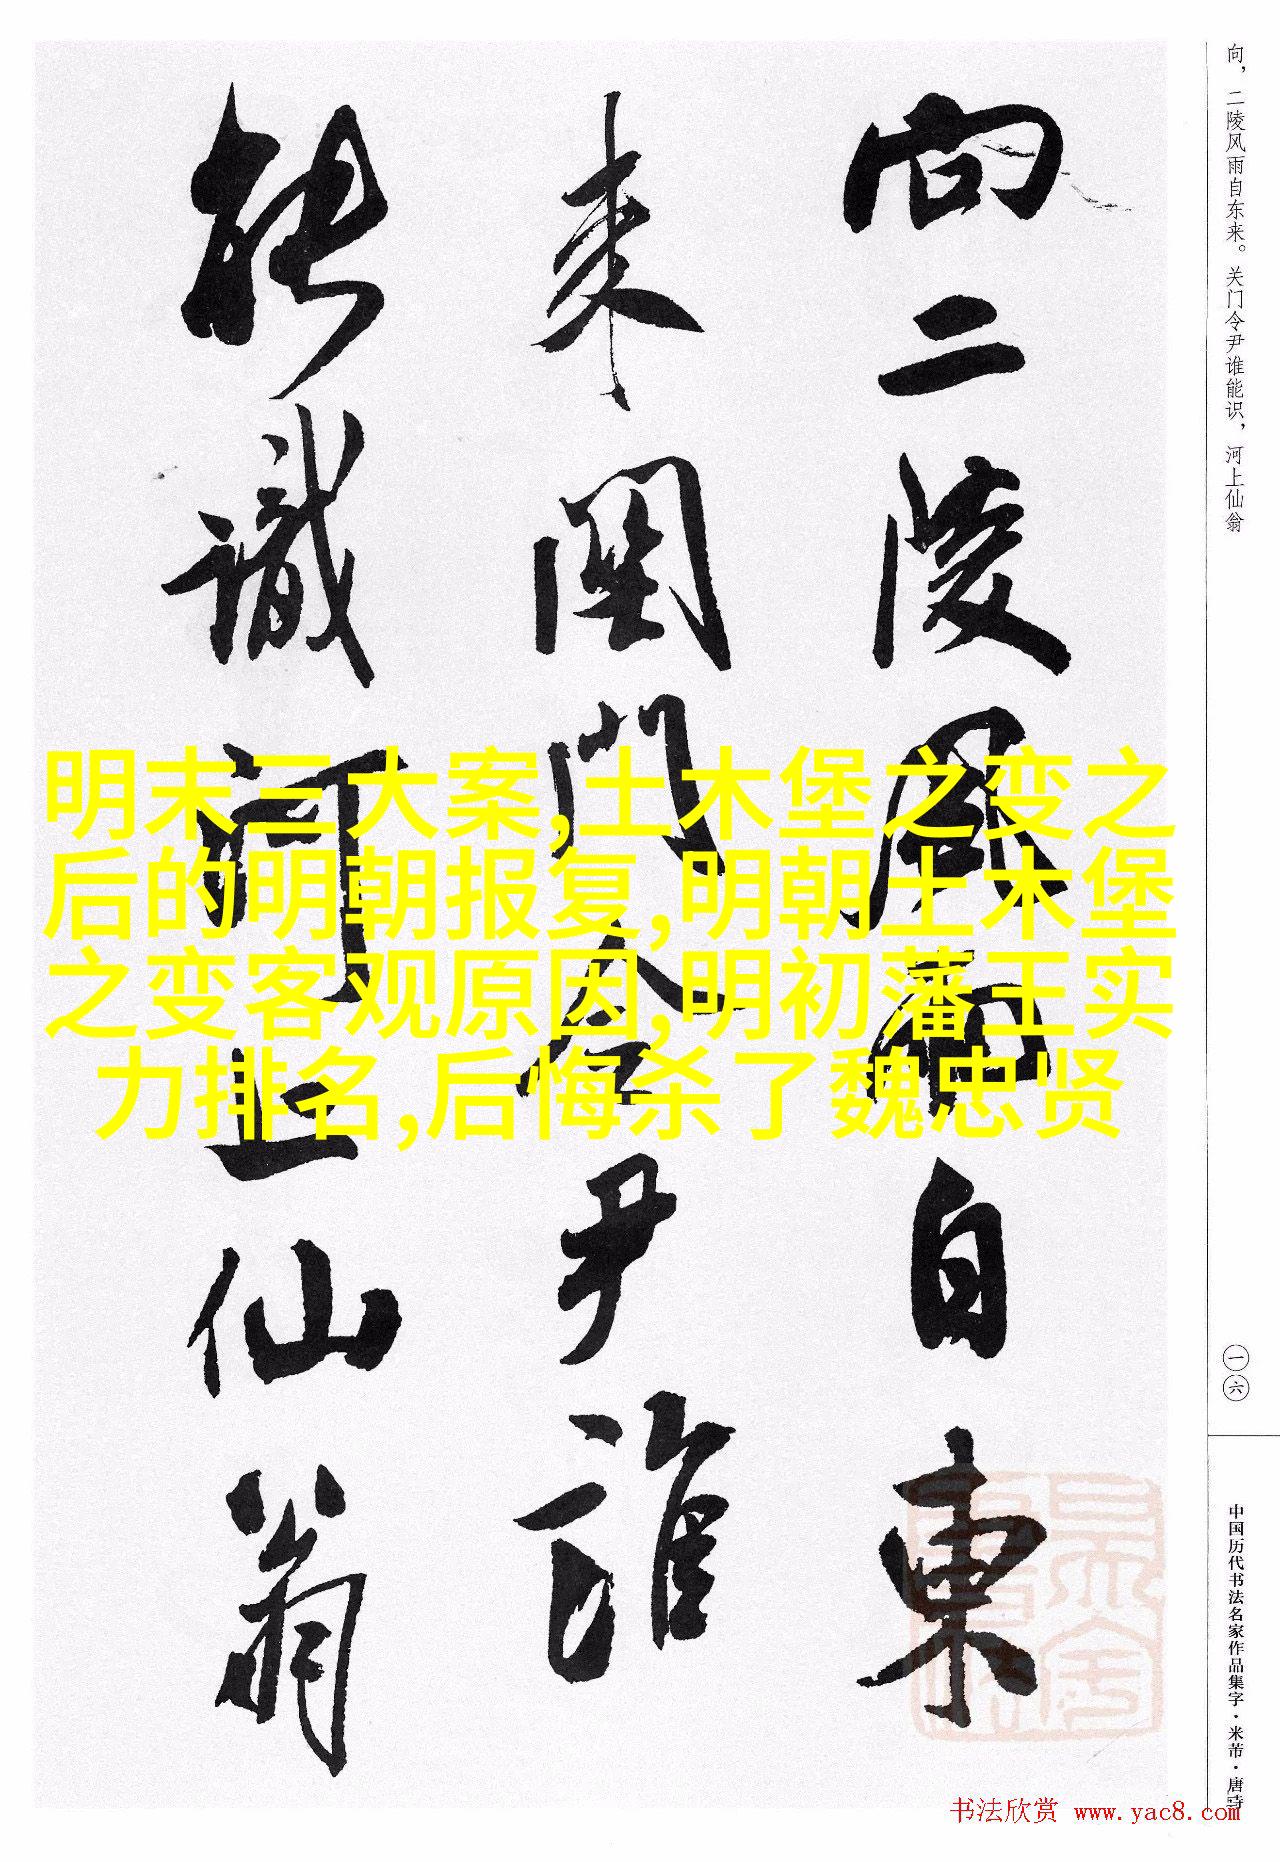 向二陵風雨自東
来關門令尹誰
能識河上仙翁
明末三大案,土木堡之变之
后的明朝报复,明朝土木堡
之变客观原因,明初藩王实
力排名,后悔杀了魏忠贤
向，二陵风雨自东来。关门令尹谁能识，河上仙翁
一六
中国历代书法名家作品集字·米芾·唐诗
书法欣赏 www.yac8.com